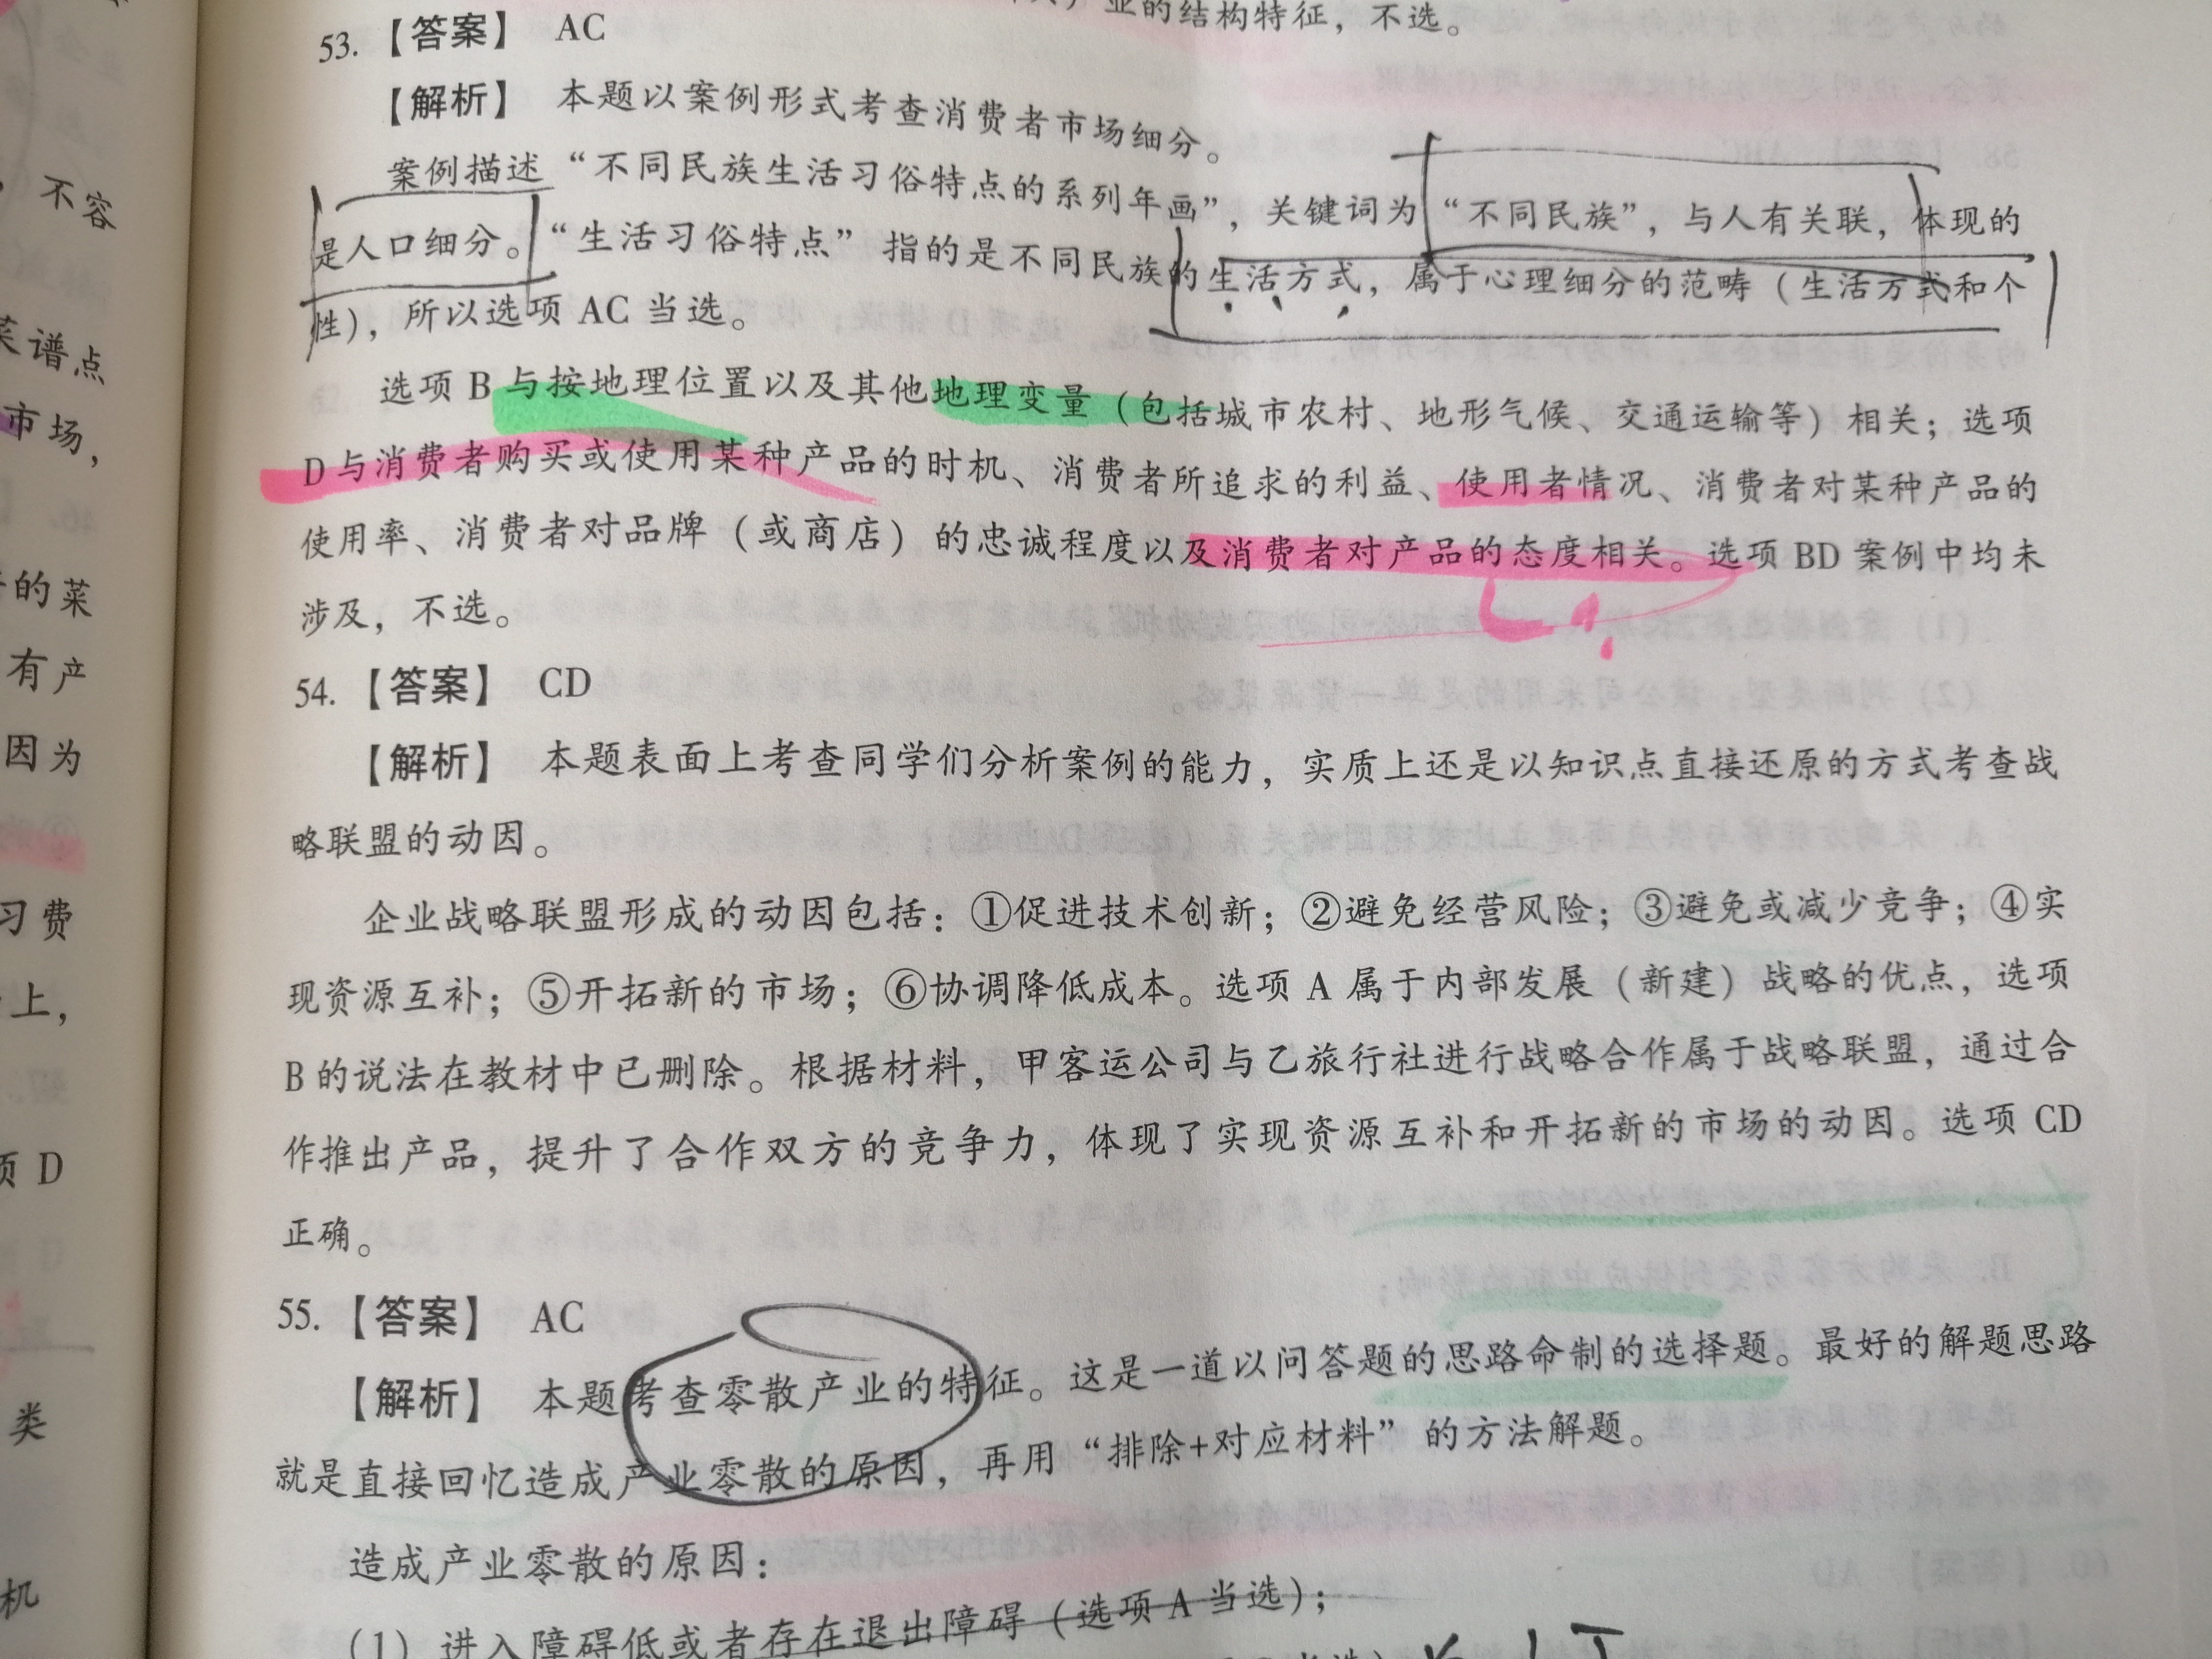 业的结构特征，不选。
53.【答案】 AC
【解析】 本题以案例形式考查消费者市场细分。
案例描述“不同民族生活习俗特点的系列年画”，关键词为“不同民族”，与人有关联，体现的
是人口细分。“生活习俗特点”指的是不同民族的生活方式，属于心理细分的范畴（生活方式和个
性），所以选项 AC 当选。
选项 B 与按地理位置以及其他地理变量（包括城市农村、地形气候、交通运输等）相关；选项
D 与消费者购买或使用某种产品的时机、消费者所追求的利益、使用者情况、消费者对某种产品的
使用率、消费者对品牌（或商店）的忠诚程度以及消费者对产品的态度相关。选项 BD 案例中均未
涉及，不选。
54.【答案】 CD
【解析】 本题表面上考查同学们分析案例的能力，实质上还是以知识点直接还原的方式考查战
略联盟的动因。
企业战略联盟形成的动因包括：①促进技术创新；②避免经营风险；③避免或减少竞争；④实
现资源互补；⑤开拓新的市场；⑥协调降低成本。选项 A 属于内部发展（新建）战略的优点，选项
B 的说法在教材中已删除。根据材料，甲客运公司与乙旅行社进行战略合作属于战略联盟，通过合
作推出产品，提升了合作双方的竞争力，体现了实现资源互补和开拓新的市场的动因。选项 CD
正确。
55.【答案】 AC
【解析】 本题考查零散产业的特征。这是一道以问答题的思路命制的选择题。最好的解题思路
就是直接回忆造成产业零散的原因，再用“排除+对应材料”的方法解题。
造成产业零散的原因：
（1）进入障碍低或者存在退出障碍（选项 A 当选）；
不容
菜谱点
市场，
的菜
有产
因为
习费
上，
项 D
类
机